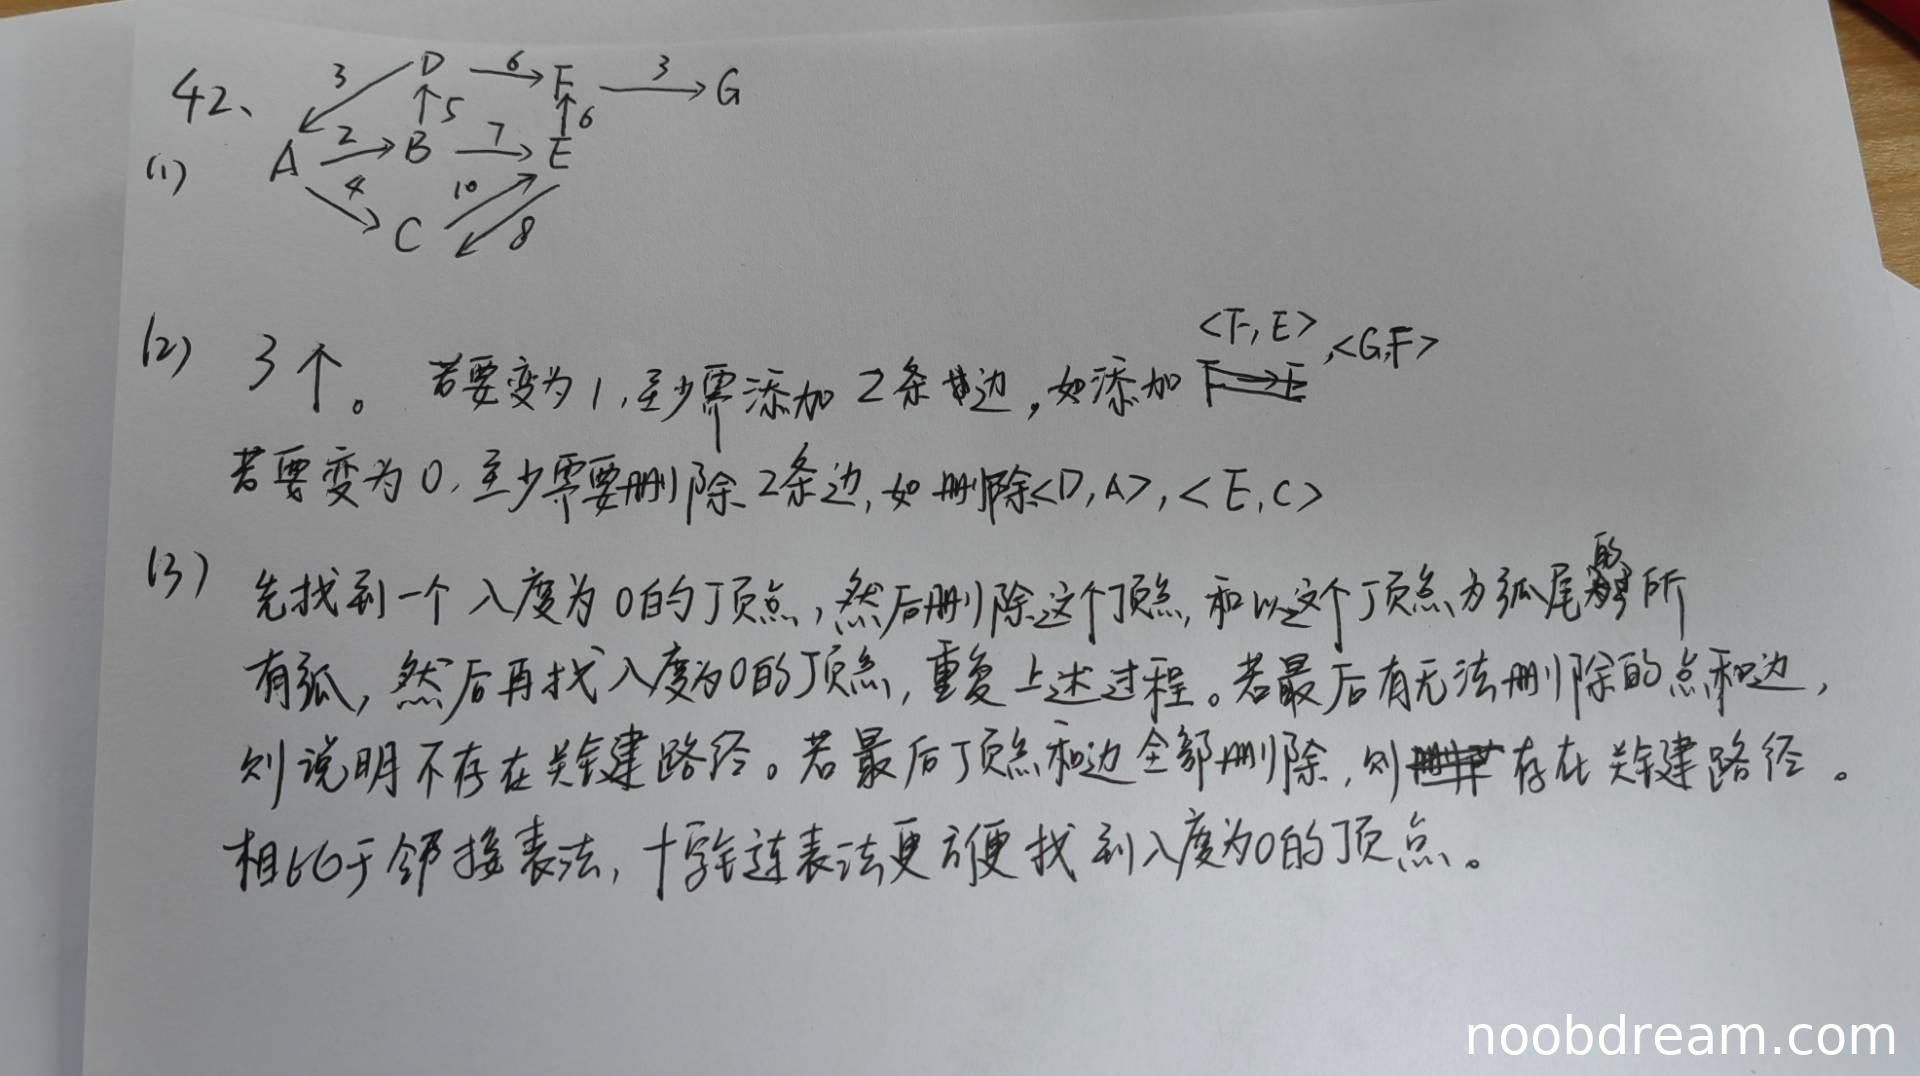 42、
(1)
3 D 6 F 3 G
5 6
A 2 B 7 E
4 10
C 8
<F, E>
(2) 3个。若要变为1,至少需添加2条边,如添加 ,<G,F>
若要变为0,至少需要删除2条边,如删除<D,A>,<E,C>
的
(3) 先找到一个入度为0的顶点,然后删除这个顶点,和以这个顶点为弧尾所
有弧,然后再找入度为0的顶点,重复上述过程。若最后有无法删除的点和边,
则说明不存在关键路径。若最后顶点和边全部删除,则存在关键路径。
相比于邻接表法,十字链表法更方便找到入度为0的顶点。
noobdream.com